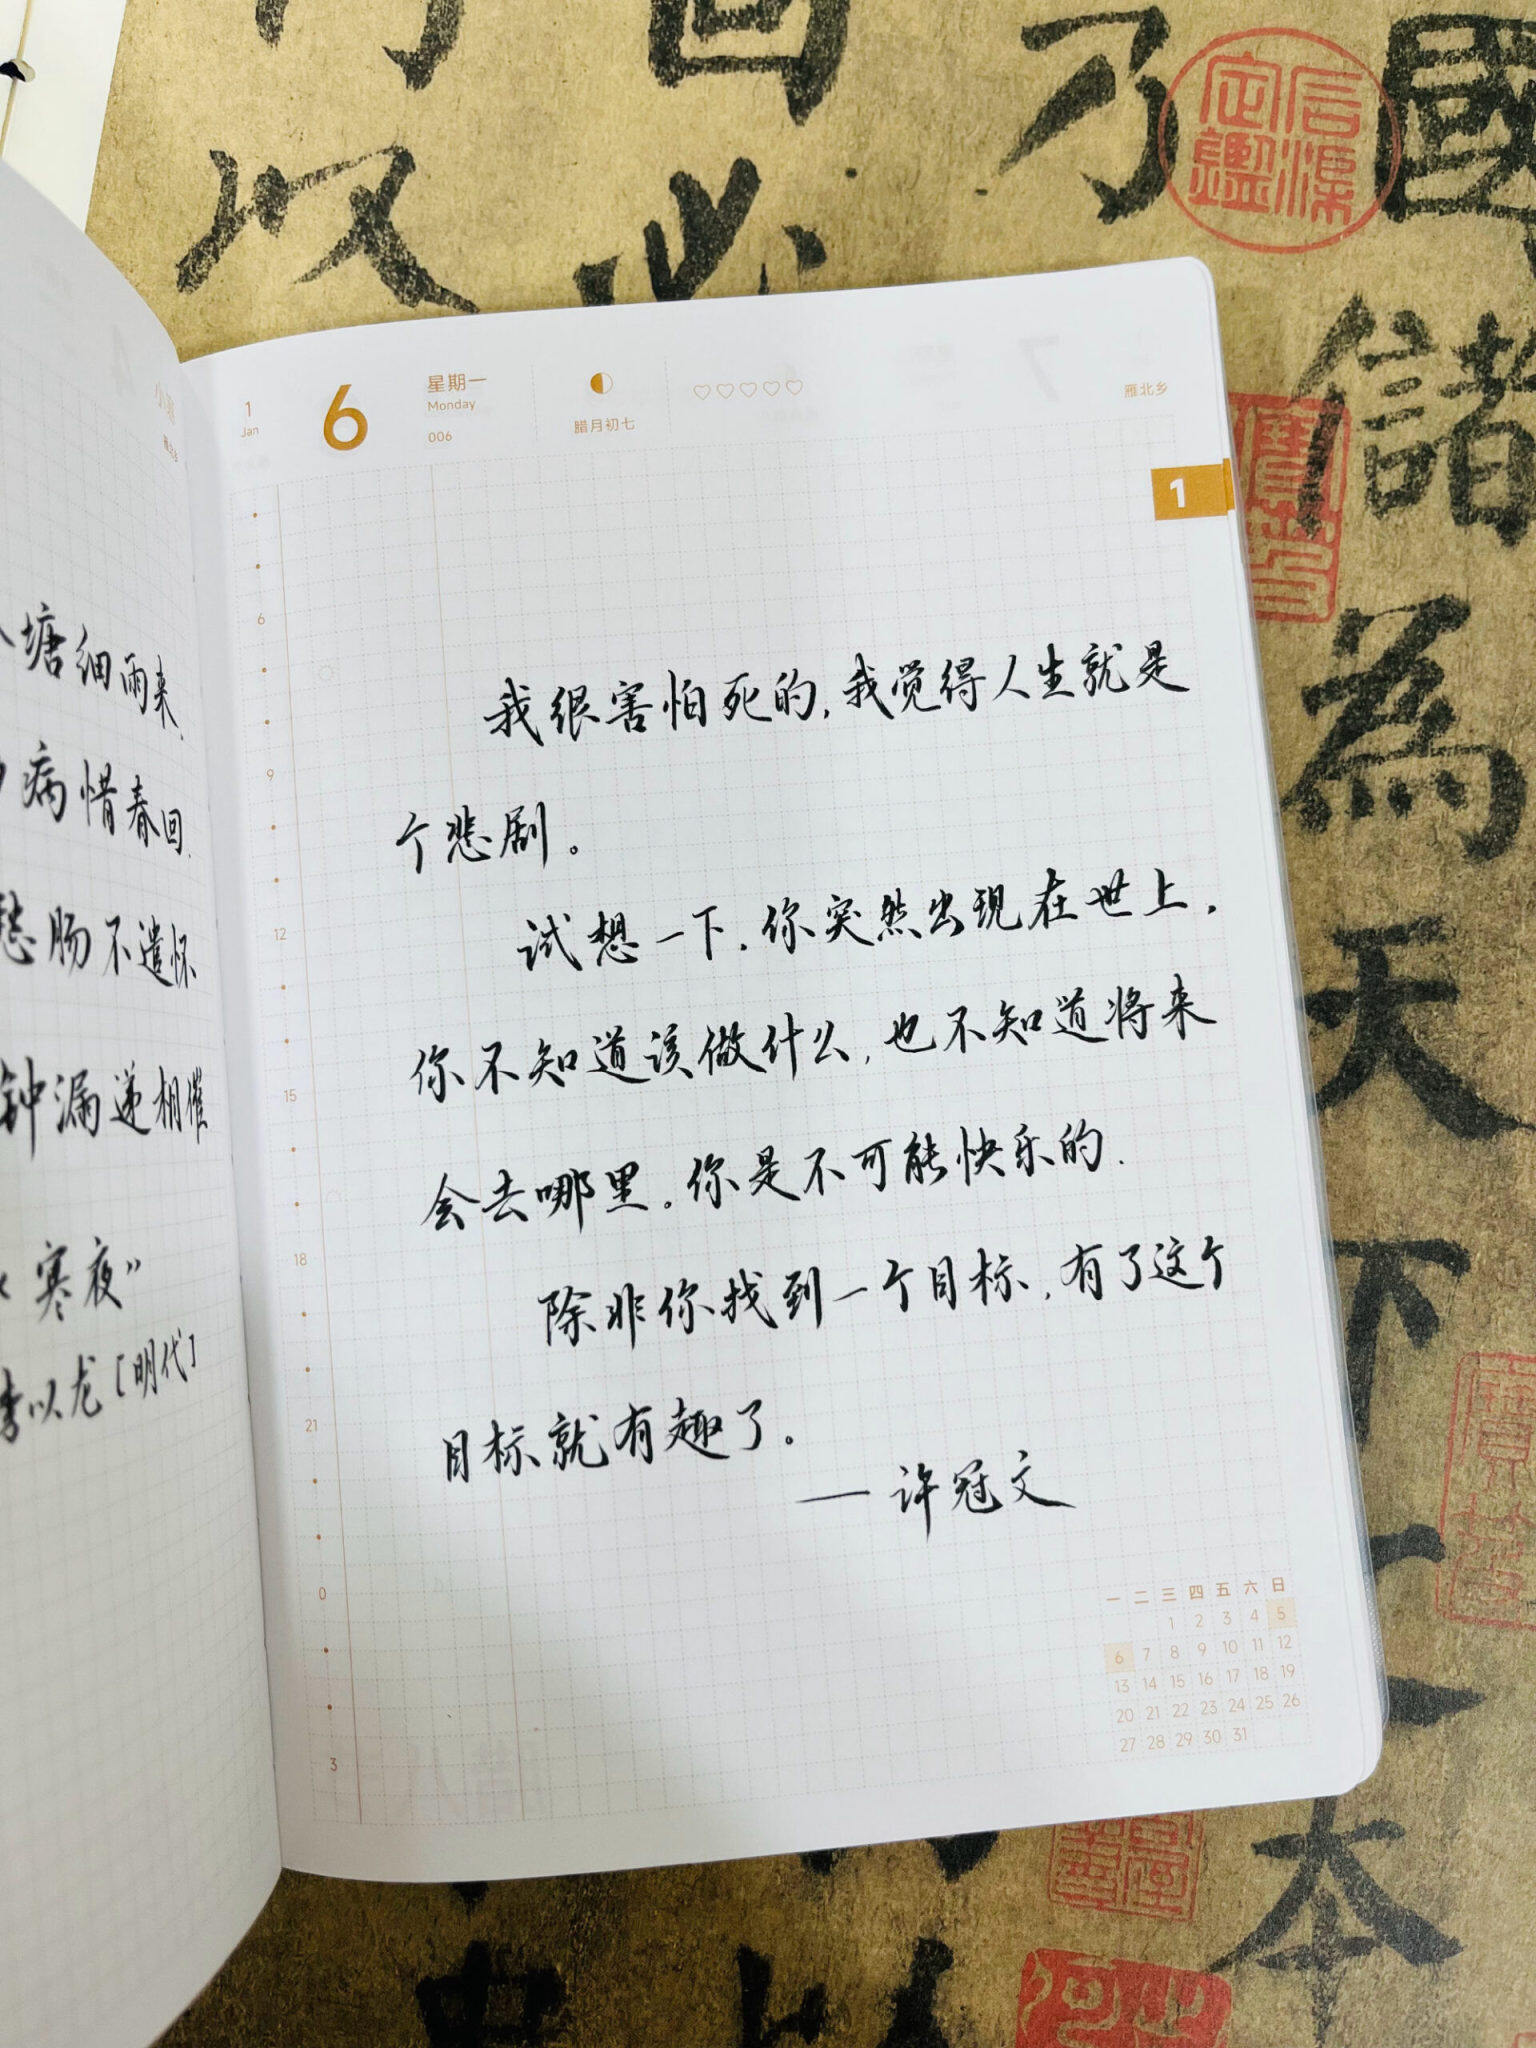 塘细雨来,
病惜春回.
愁肠不遣怀
钟漏递相催
“寒夜”
李以龙[明代]
1
Jan
6
星期一
Monday
006
腊月初七
雁北乡
1
6
9
12
15
18
21
0
3
我很害怕死的,我觉得人生就是
个悲剧。
试想一下,你突然出现在世上,
你不知道该做什么,也不知道将来
会去哪里。你是不可能快乐的.
除非你找到一个目标,有了这个
目标就有趣了。
— 许冠文
一 二 三 四 五 六 日
1 2 3 4 5
6 7 8 9 10 11 12
13 14 15 16 17 18 19
20 21 22 23 24 25 26
27 28 29 30 31
國
儲
為
天
下
本
以
必
乃